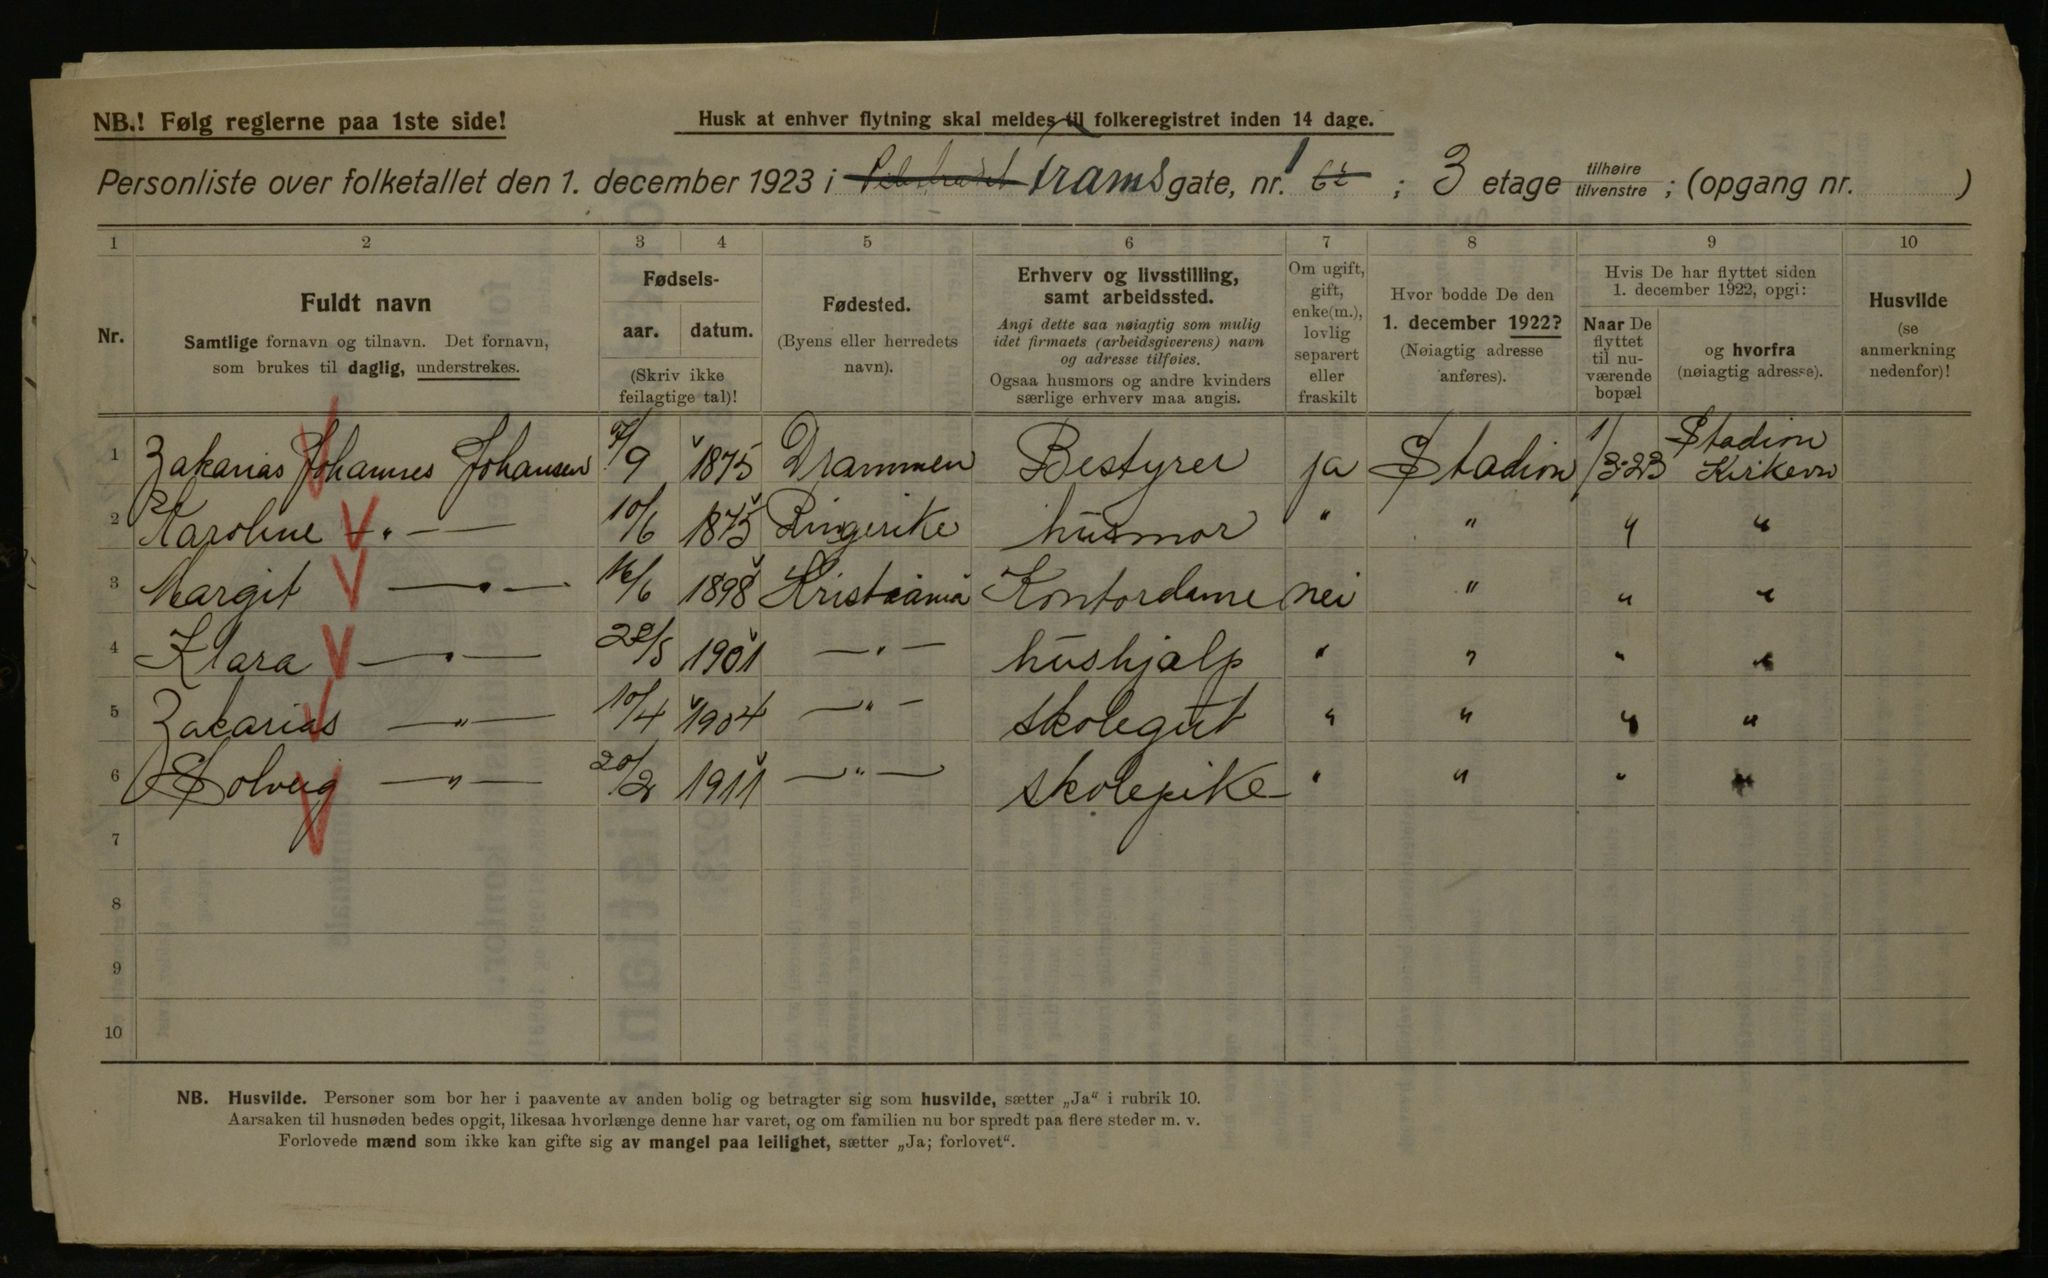 NB.! Følg reglerne paa 1ste side!
Husk at enhver flytning skal meldes til folkeregistret inden 14 dage.
Personliste over folketallet den 1. december 1923 i Frams gate, nr. 1 62 ; 3 etage tilhøire tilvenstre ; (opgang nr. )
1 2 3 4 5 6 7 8 9 10
Nr.
Fuldt navn
Samtlige fornavn og tilnavn. Det fornavn,
som brukes til daglig, understrekes.
Fødsels-
aar. datum.
(Skriv ikke
feilagtige tal)!
Fødested.
(Byens eller herredets
navn).
Erhverv og livsstilling,
samt arbeidssted.
Angi dette saa nøiagtig som mulig
idet firmaets (arbeidsgiverens) navn
og adresse tilføies.
Ogsaa husmors og andre kvinders
særlige erhverv maa angis.
Om ugift,
gift,
enke(m.),
lovlig
separert
eller
fraskilt
Hvor bodde De den
1. december 1922?
(Nøiagtig adresse
anføres).
Hvis De har flyttet siden
1. december 1922, opgi:
Naar De
flyttet
til nu-
værende
bopæl
og hvorfra
(nøiagtig adresse).
Husvilde
(se
anmerkning
nedenfor)!
1 Zakarias Johannes Johansen /9 1875 Drammen Bestyrer ja Stadion 1/3-23 Stadion Kirkevn
2 Karoline —"— 10/6 1875 Ringerike husmor " " " "
3 Margit —"— 16/6 1898 Kristiania Kontordame nei " " "
4 Klara —"— 22/5 1901 —"— hushjælp " " " "
5 Zakarias —"— 10/4 1904 —"— skolegut " " " "
6 Solveig —"— 20/2 1911 —"— skolepike " " " "
7
8
9
10
NB. Husvilde. Personer som bor her i paavente av anden bolig og betragter sig som husvilde, sætter „Ja“ i rubrik 10.
Aarsaken til husnøden bedes opgit, likesaa hvorlænge denne har varet, og om familien nu bor spredt paa flere steder m. v.
Forlovede mænd som ikke kan gifte sig av mangel paa leilighet, sætter „Ja; forlovet“.